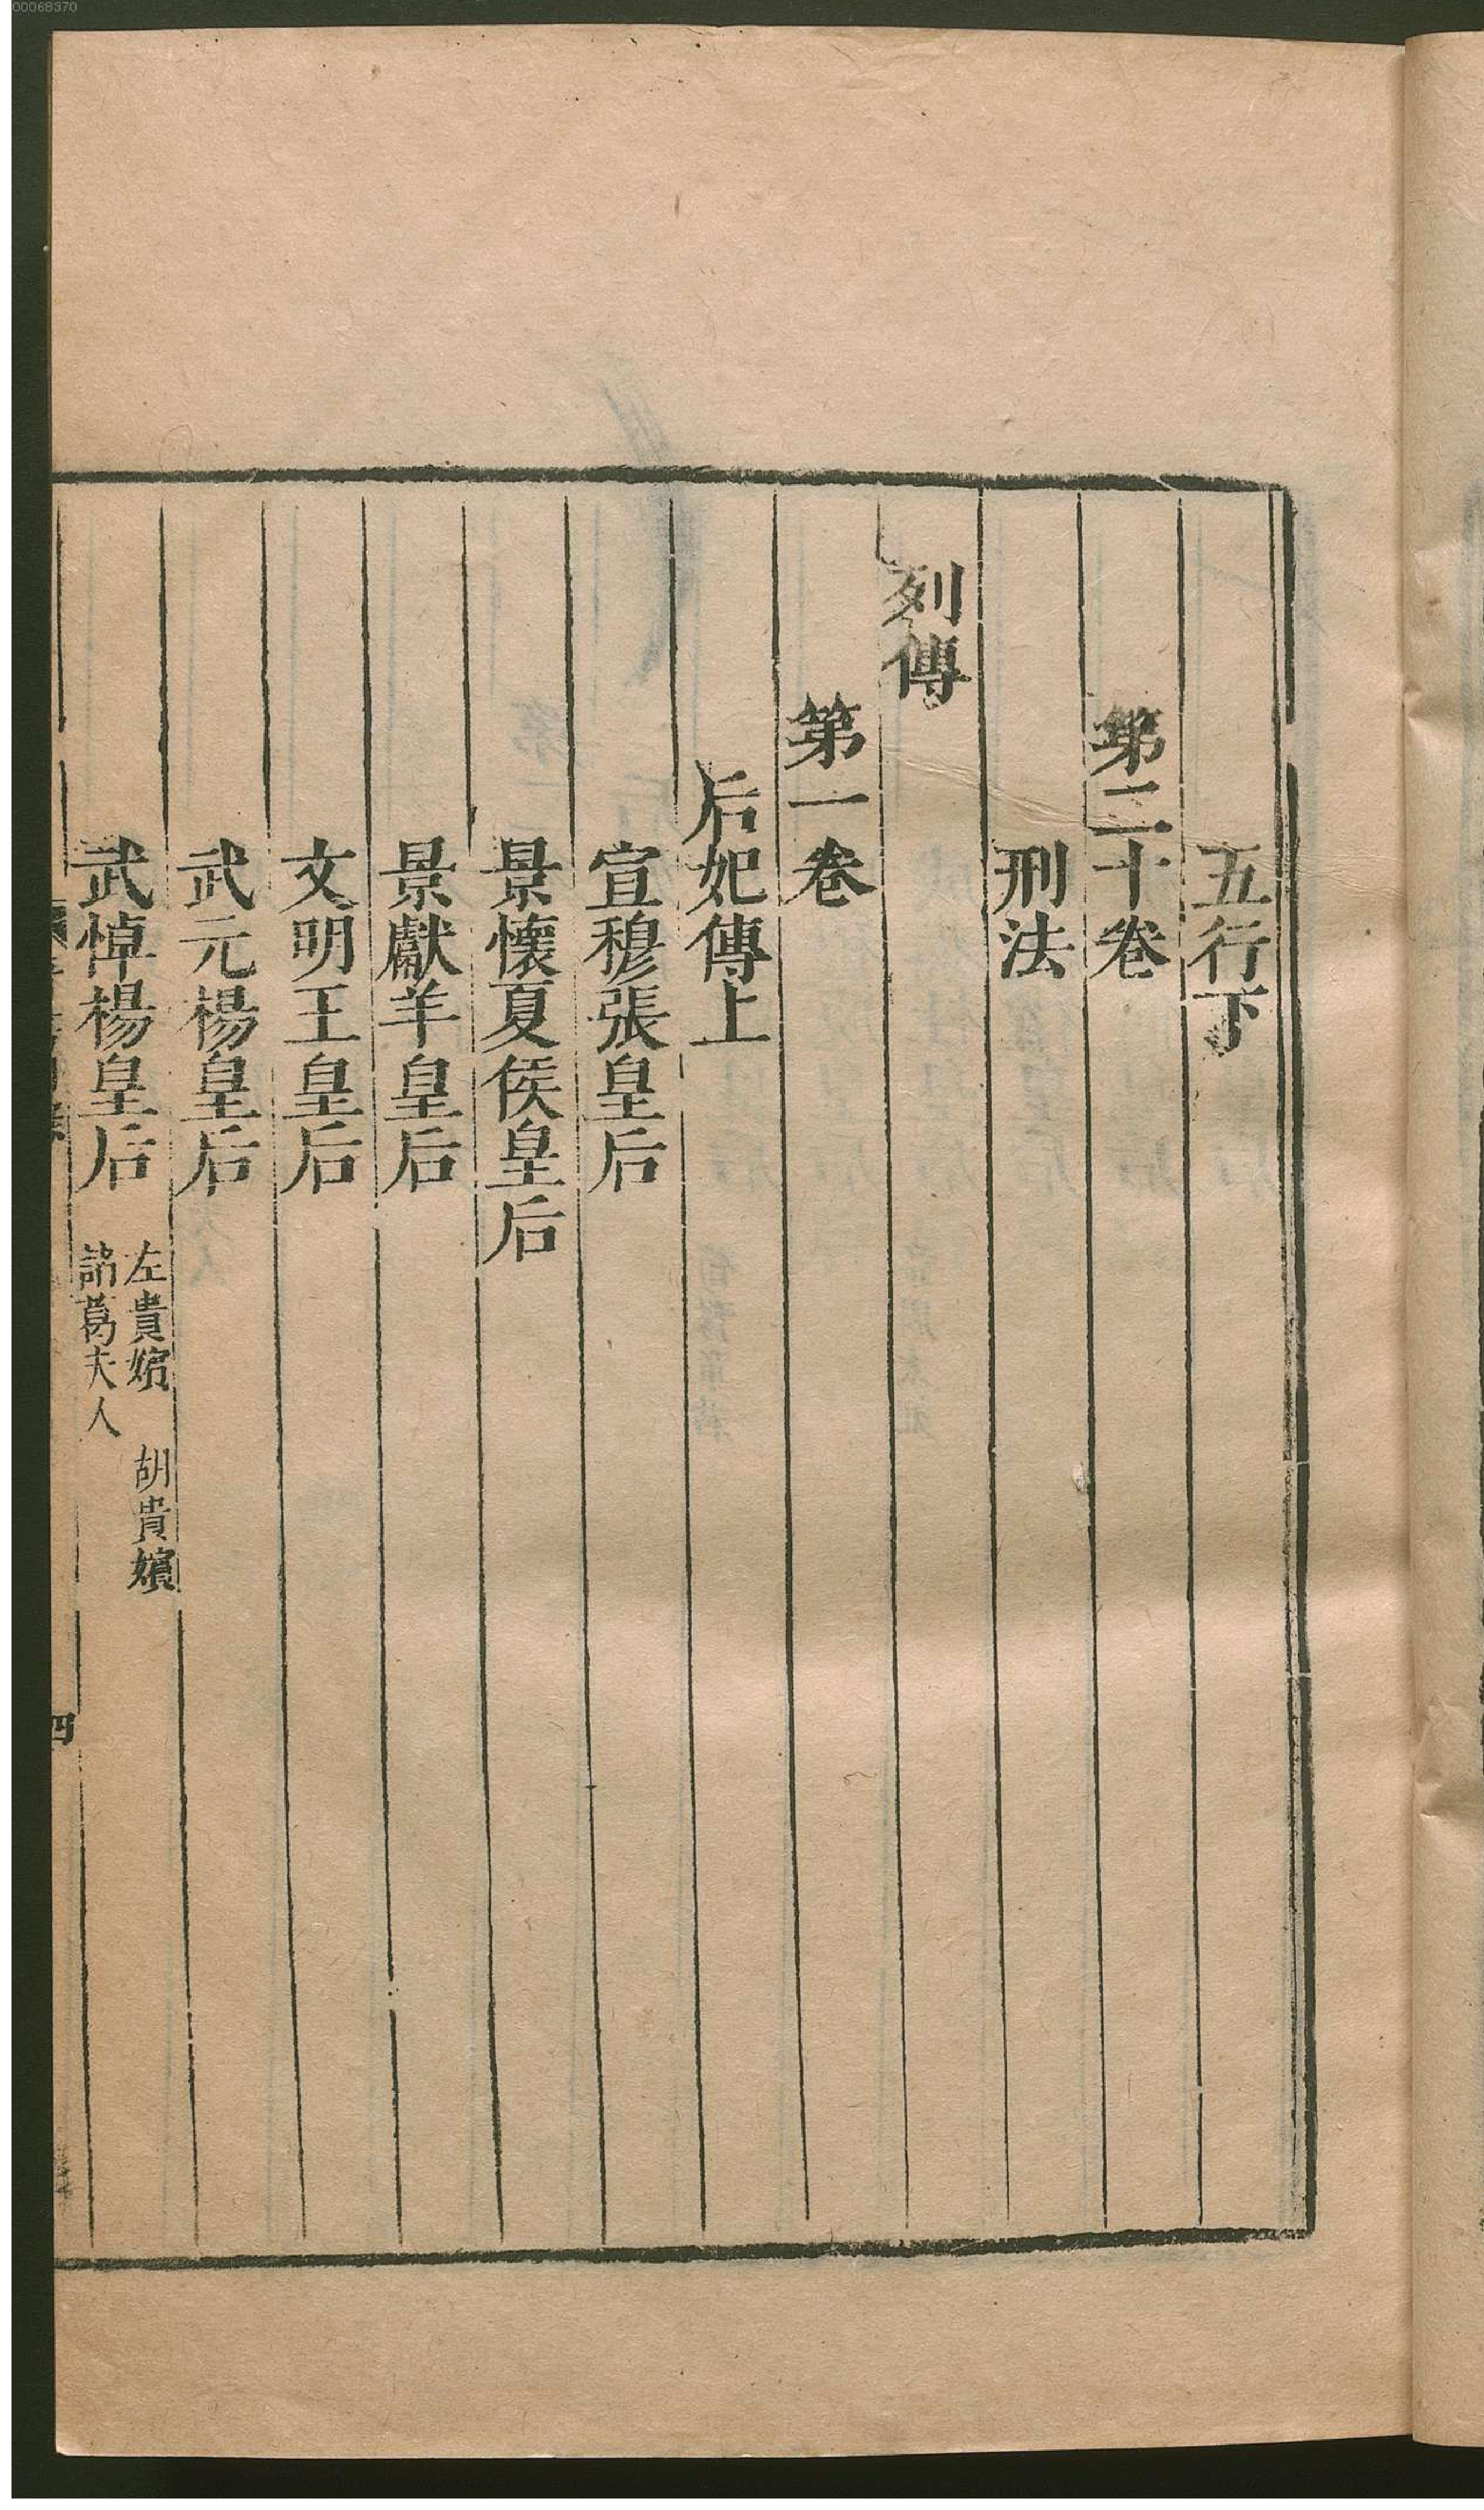 00068370
五行下
第二十卷
刑法
列傳
第一卷
后妃傳上
宣穆張皇后
景懷夏侯皇后
景獻羊皇后
文明王皇后
武元楊皇后
武悼楊皇后
左貴嬪 胡貴嬪
諸葛夫人
四